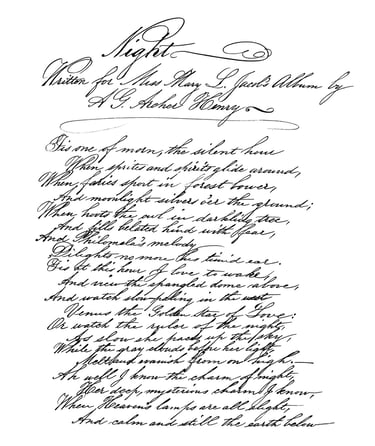 Night
Written for Miss Mary L. Jack's Album by
A. G. Archer Henry
Tis one of morn, the silent hour
When sprites and spirits glide around,
When faries sport in forest bower,
And moonlight silvers o'er the ground;
When hoots the owl in darkling tree,
And fills belated hind with fear,
And Philomela's melody
Delights no more his timid ear.
Tis at this hour I love to wake,
And view the spangled dome above,
And watch slow paling in the west
Venus the Golden Star of Love:
Or watch the ruler of the night,
As slow she paces up the sky,
While the gray clouds before her light
Melt and vanish from on high.
Ah well I know the charm of night,
Her deep, mysterious charm I know,
When Heaven's lamps are all alight,
And calm and still the earth below